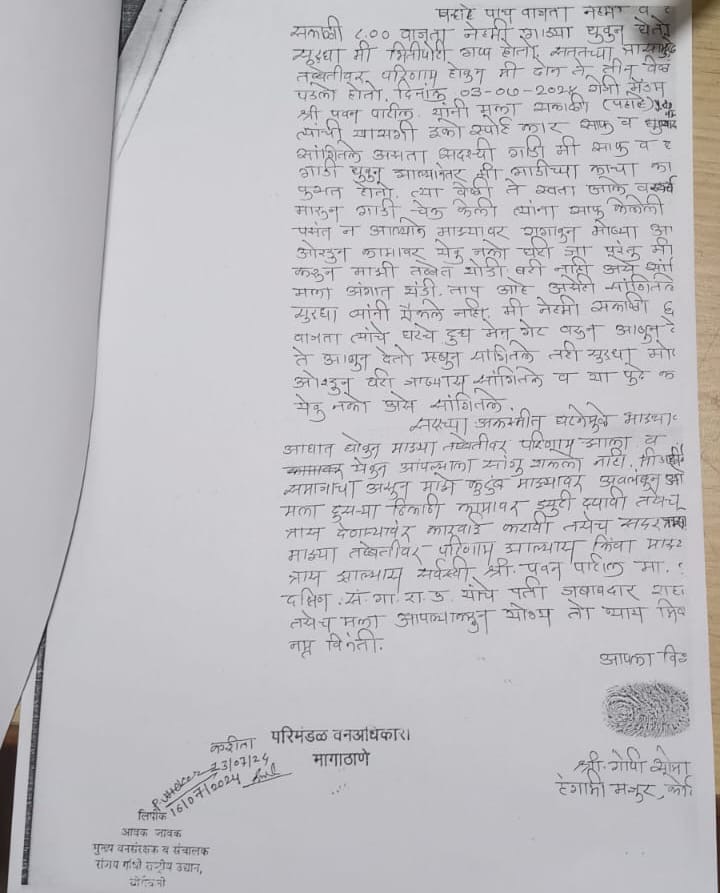 पहाटे पाच वाजता नेहमी व
सकाळी ८.०० वाजता नेहमी गाड्या धुवुन घेतो
सुद्धा मी भितीपोटी गप्प होतो. सततच्या त्रासामुळे
तब्बेतीवर परिणाम होवुन मी दोन ते तीन वेळ
पडलो होतो. दिनांक ०३-०७-२०२४ रोजी मॅडम
श्री पवन पाटील यांनी मला सकाळी (पहाटे)
त्यांची खाजगी इको स्पोर्ट कार साफ व
सांगितले असता सदरची गाडी मी साफ व
गाडी धुवुन झाल्यानंतर मी गाडीच्या काचा का
पुसत होतो. त्या वेळी ते स्वता आले व
मारून गाडी चेक केली त्यांना साफ केलेली
पसंत न आल्याने माझ्यावर रागावुन मोठ्या आ
ओरडुन कामावर येऊ नको घरी जा परंतु मी
कडुन माझी तब्बेत थोडी बरी नाही असे सां
मला अंगात थंडी ताप आहे असेही सांगितले
सुद्धा त्यांनी ऐकले नाही. मी नेहमी सकाळी ६
वाजता त्यांचे घरचे दुध मेन गेट वरून आणुन दे
ते आणुन देतो म्हणुन सांगितले तरी सुद्धा मो
ओरडुन घरी जाण्यास सांगितले व या पुढे क
येऊ नको असे सांगितले.
सदरच्या अकस्मीत घटनेमुळे माझ्या
आघात होवुन माझ्या तब्बेतीवर परिणाम झाला व
येवुन आपल्याला सांगु शकलो नाही. मी
समाजाचा असुन माझे कुटुंब माझ्यावर अवलंबून
मला दुसऱ्या ठिकाणी कामावर ड्युटी द्यावी तसेच
त्रास देणाऱ्यांवर कारवाई करावी तसेच सदर
माझ्या तब्बेतीवर परिणाम झाल्यास किंवा
त्रास झाल्यास सर्वस्वी श्री. पवन पाटील मा.
दक्षिण सं.गा.रा.उ. यांचे पती जबाबदार
तसेच मला आपल्याकडुन योग्य तो न्याय मिळ
नम्र विनंती.
आपला
श्री. गोपी
हंगामी मजुर,
करीता
परिमंडळ वनअधिकारी
मागाठाणे
23/07/24
16/07/2024
लिपीक
आवक जावक
मुख्य वनसंरक्षक व संचालक
संजय गांधी राष्ट्रीय उद्यान,
बोरीवली